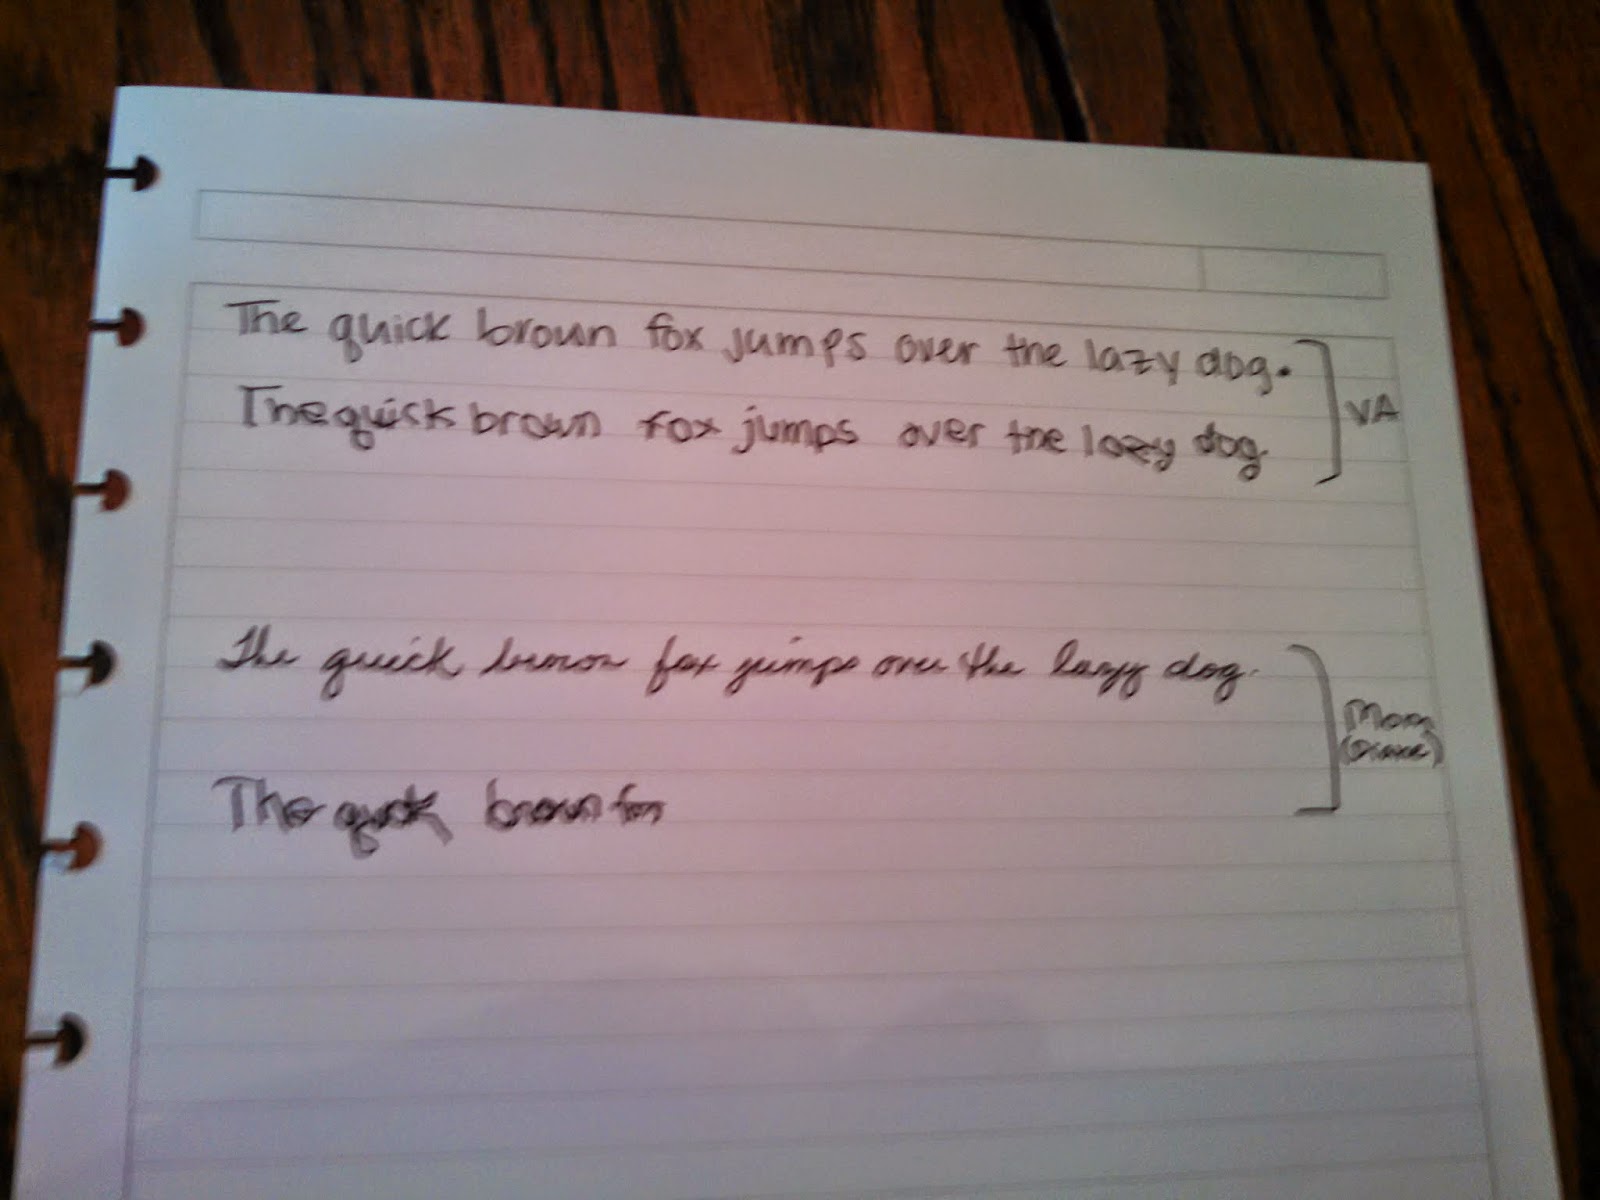 The quick broun fox jumps over the lazy dog.
The quick brown fox jumps over the lazy dog
VA
The quick brown fox jumps over the lazy dog.
Mom
(Diane)
The quick brown fox